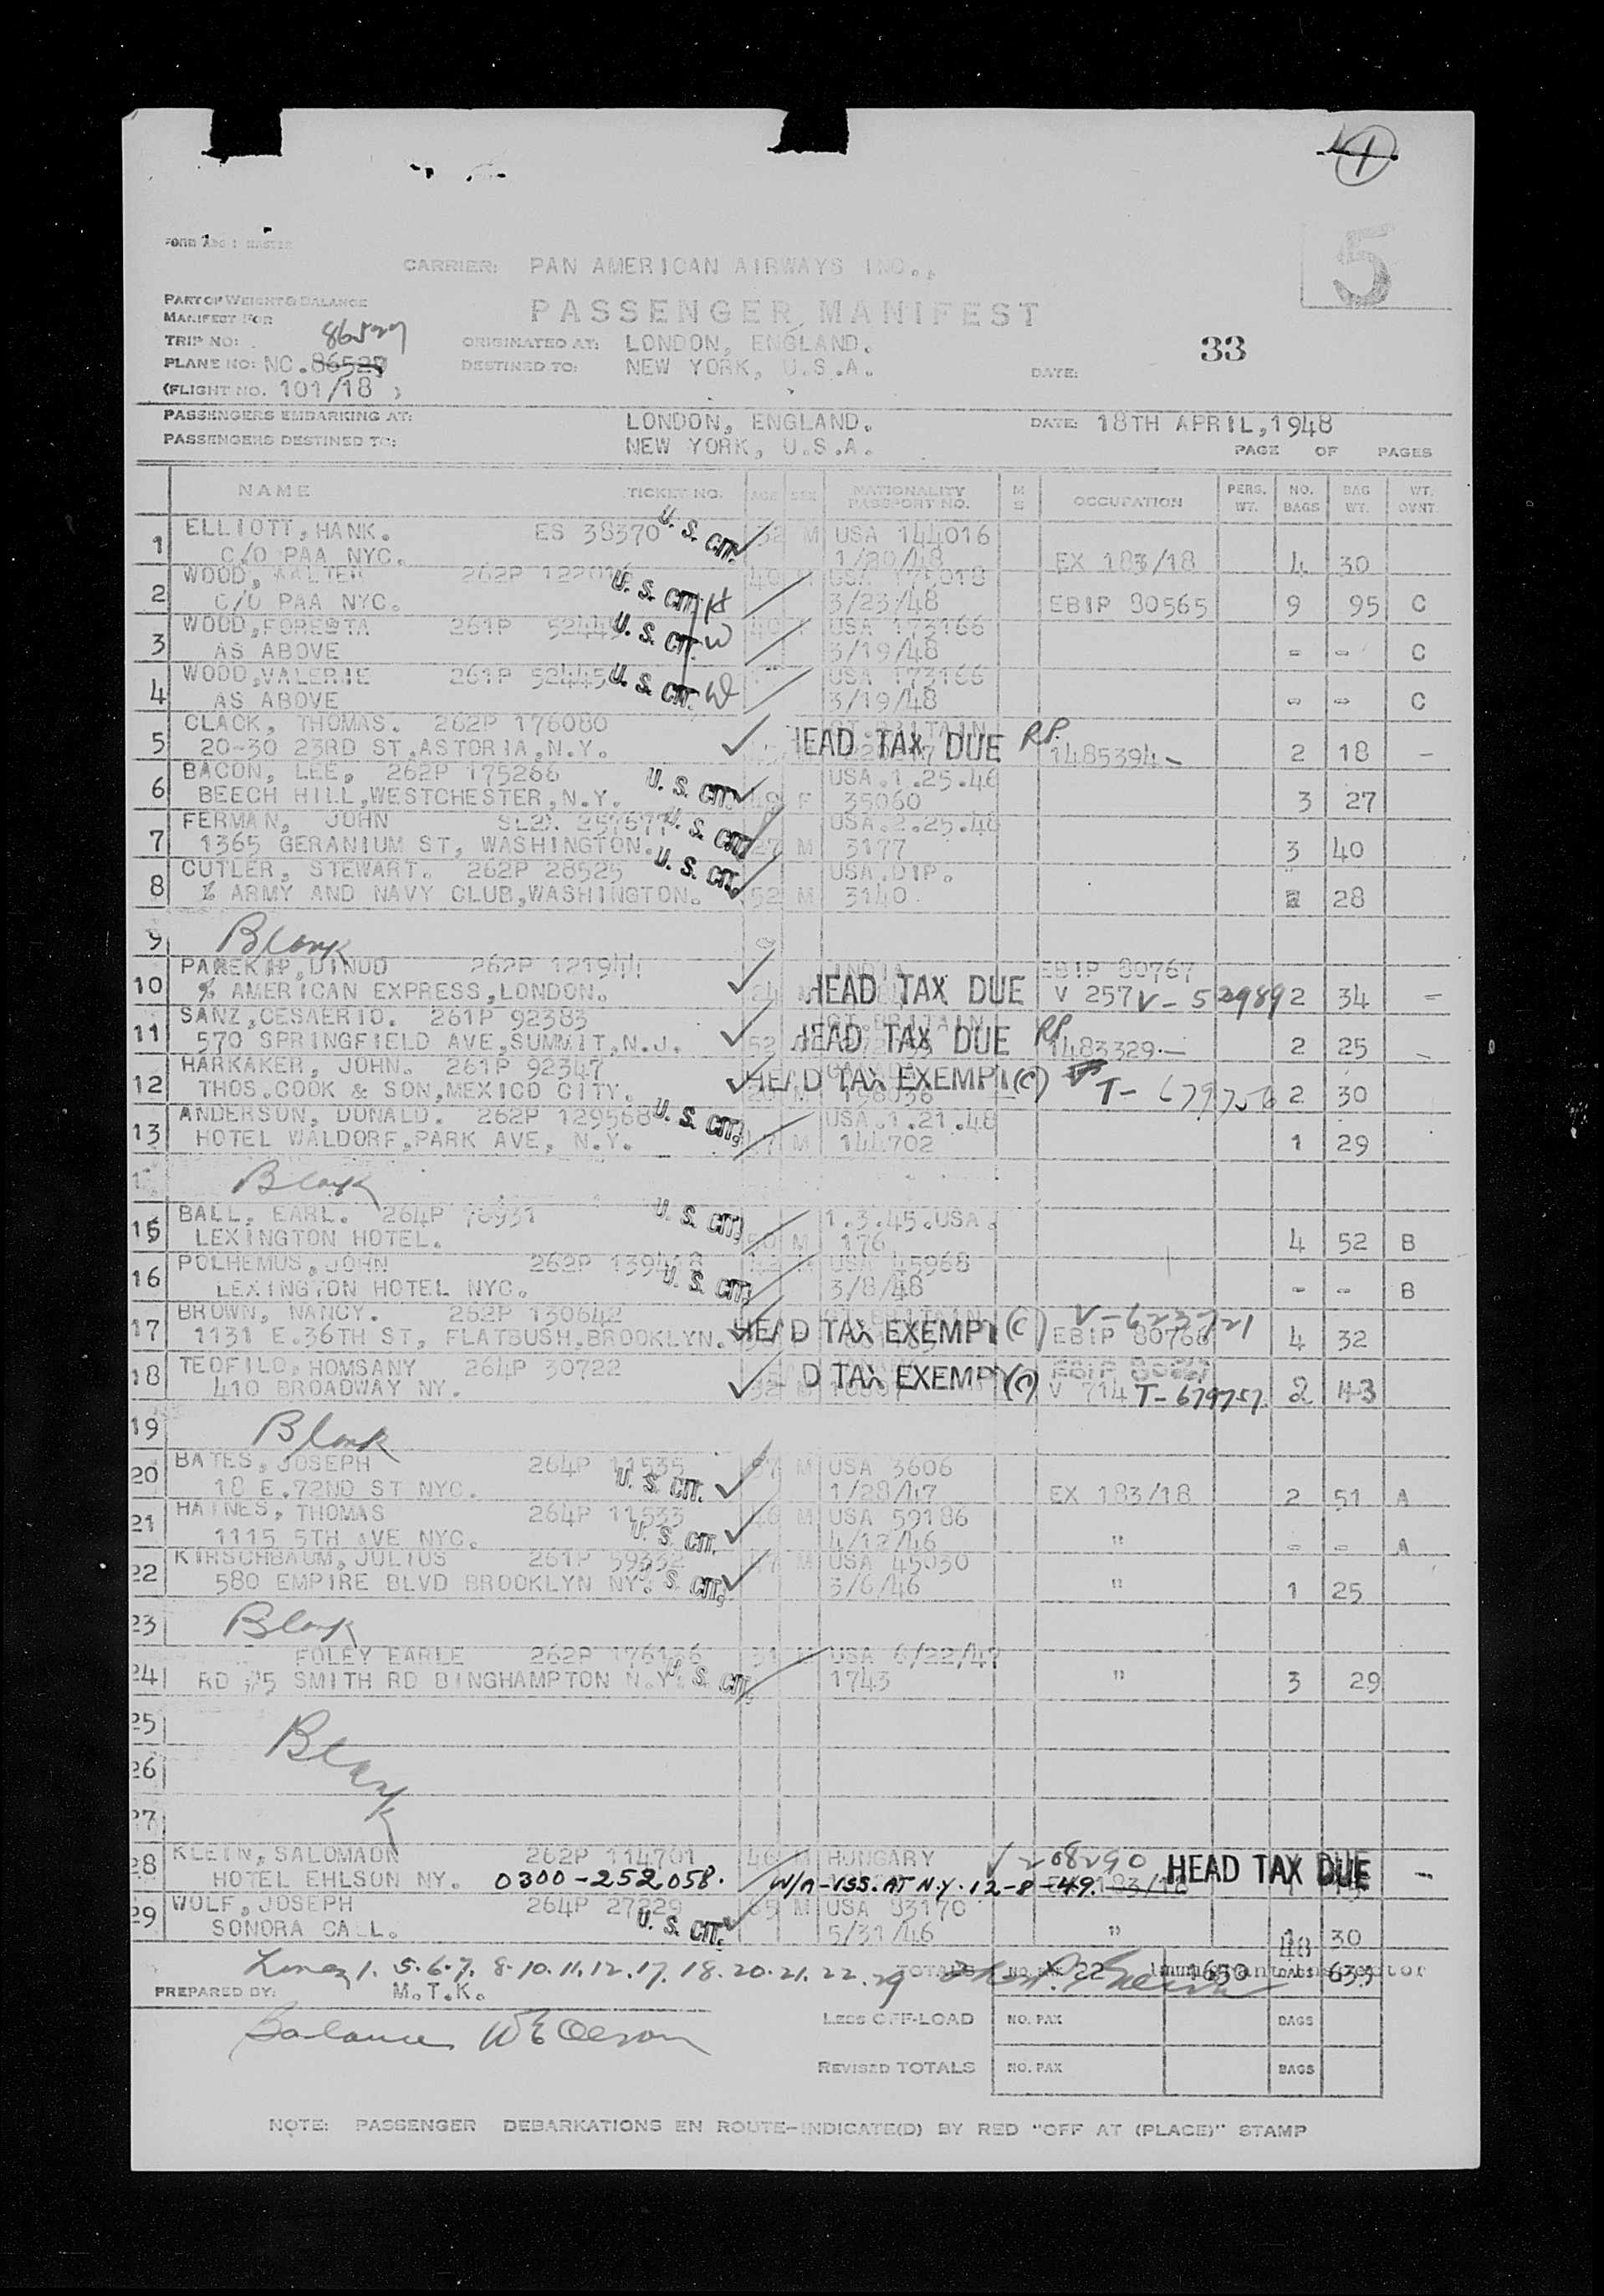 1
5
FORM
CARRIER: PAN AMERICAN AIRWAYS INC.,
PART OF WEIGHT & BALANCE
MANIFEST FOR
PASSENGER MANIFEST
TRIP NO: 86529
ORIGINATED AT: LONDON, ENGLAND.
33
PLANE NO: NC.86520
DESTINED TO: NEW YORK, U.S.A.
DATE:
(FLIGHT NO. 101/18 )
PASSENGERS EMBARKING AT: LONDON, ENGLAND. DATE: 18TH APRIL,1948
PASSENGERS DESTINED TO: NEW YORK, U.S.A.
PAGE OF PAGES
NAME TICKET NO. AGE SEX NATIONALITY PASSPORT NO. M S OCCUPATION PERS. WT. NO. BAGS BAG WT. WT. OVNT.
1 ELLIOTT,HANK. ES 38370 U. S. CIT. 32 M USA 144016
C/O PAA NYC. 1/20/48 EX 183/18 4 30
2 WOOD, WALTER 262P U. S. CIT. H 40 USA 175018
C/O PAA NYC. 3/23/48 EBIP 80565 9 95 C
3 WOOD,FORESTA 261P U. S. CIT. W 40 F USA 173166
AS ABOVE 3/19/48 - - C
4 WOOD,VALERIE 261P 52445 U. S. CIT. W USA 173166
AS ABOVE 3/19/48 - - C
5 CLACK, THOMAS. 262P 176080 GT.BRITAIN
20-30 23RD ST,ASTORIA,N.Y. HEAD TAX DUE RP. 1485394- 2 18 -
6 BACON, LEE, 262P 175266 U. S. CIT. USA.1.25.46
BEECH HILL,WESTCHESTER,N.Y. 49 F 35060 3 27
7 FERMAN, JOHN U. S. CIT. USA.2.25.48
1365 GERANIUM ST, WASHINGTON. 27 M 3177 3 40
8 CUTLER, STEWART. 262P 28525 U. S. CIT. USA.DIP.
% ARMY AND NAVY CLUB,WASHINGTON. 52 M 3140 28
9 Blank
10 262P 121944 INDIA EBIP 80767
% AMERICAN EXPRESS,LONDON. HEAD TAX DUE V 257 V-52989 2 34 -
11 SANZ,CESAERIO. 261P 92383 GT.BRITAIN RP.
570 SPRINGFIELD AVE,SUMMIT,N.J. 52 HEAD TAX DUE 1483329.- 2 25 -
12 HARKAKER, JOHN. 261P 92347
THOS.COOK & SON,MEXICO CITY. HEAD TAX EXEMPT (C) 20 M T-679756 2 30
13 ANDERSON, DONALD. 262P 129568 U. S. CIT. USA.1.21.48
HOTEL WALDORF,PARK AVE, N.Y. M 144702 1 29
Blank
15 BALL, EARL. 264P 76931 U. S. CIT. 1.3.45.USA.
LEXINGTON HOTEL. 50 M 176 4 52 B
16 POLHEMUS,JOHN 262P U. S. CIT. 42 M USA 45968
LEXINGTON HOTEL NYC. 3/8/48 - - B
17 BROWN, NANCY. 262P 130642 GT.BRITAIN V-623721
1131 E.36TH ST, FLATBUSH,BROOKLYN. HEAD TAX EXEMPT (C) EBIP 80766 4 32
18 TEOFILO,HOMSANY 264P 30722 EBIP
410 BROADWAY NY. 32 M HEAD TAX EXEMPT (C) V 714 T-679757 2 43
19 Blank
20 BATES,JOSEPH 264P 11535 U. S. CIT. 37 M USA 3606
18 E.72ND ST NYC. 1/28/47 EX 183/18 2 51 A
21 HAINES, THOMAS 264P 11533 U. S. CIT. 46 M USA 59186
1115 5TH AVE NYC. 4/12/46 " - - A
22 KIRSCHBAUM,JULIUS 261P 59332 U. S. CIT. 47 M USA 45030
580 EMPIRE BLVD BROOKLYN NY. 3/6/46 " 1 25
23 Blank
24 FOLEY EARLE 262P 176136 U. S. CIT. 31 M USA 6/22/47
RD #5 SMITH RD BINGHAMPTON N.Y. 1743 " 3 29
25
26 Blank
27
28 KLEIN,SALOMAON 262P 114701 46 M HUNGARY V 208290 HEAD TAX DUE -
HOTEL EHLSON NY. 0300-252058. W/A-ISS.AT N.Y. 12-8-49. 183/18
29 WOLF,JOSEPH 264P 27229 U. S. CIT. 65 M USA 83170
SONORA CALL. 5/31/46 " 30
Lines 1. 5.6.7. 8.10.11.12.17.18.20.21.22.29 TOTALS NO. PAX 22 1650 48 BAGS 633
Immigrant Inspector
PREPARED BY: M.T.K.
Balance W E Olson
LESS OFF-LOAD NO. PAX BAGS
REVISED TOTALS NO. PAX BAGS
NOTE: PASSENGER DEBARKATIONS EN ROUTE-INDICATE(D) BY RED "OFF AT (PLACE)" STAMP